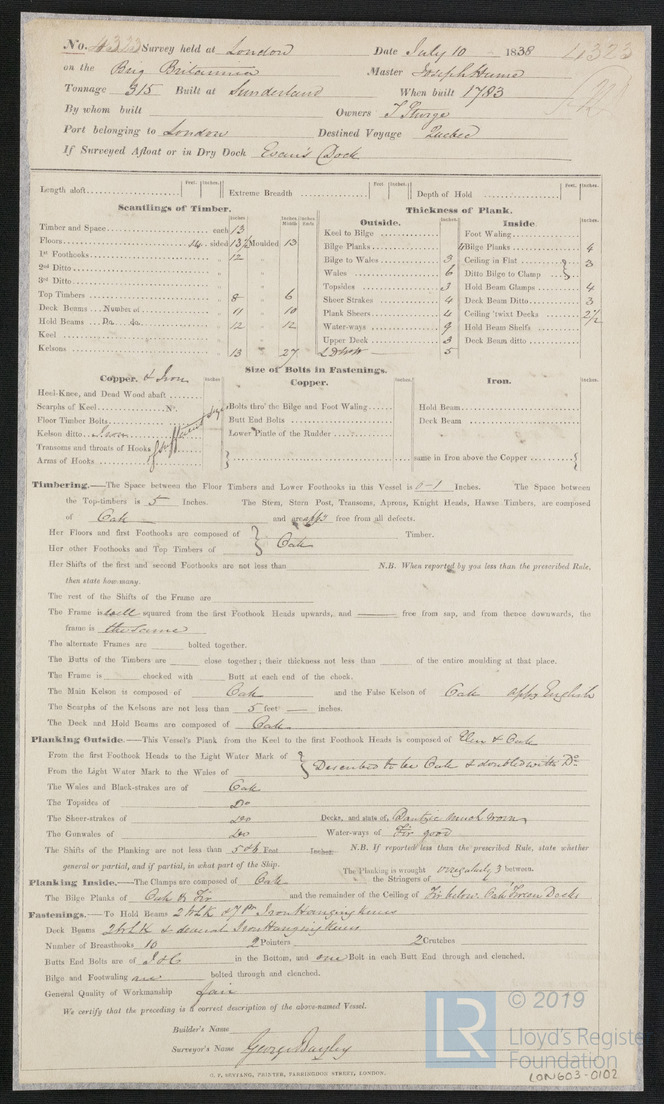 No. 4323 Survey held at London Date July 10 1838 4323
on the Brig Britannia Master Joseph Hume
Tonnage 315 Built at Sunderland When built 1783
By whom built Owners T George
Port belonging to London Destined Voyage Quebec
If Surveyed Afloat or in Dry Dock Evans Dock
Length aloft Feet. Inches. Extreme Breadth Feet. Inches. Depth of Hold Feet. Inches.
Scantlings of Timber.
Inches Inches Middle Inches Ends
Timber and Space each 13
Floors 14 sided 13½ Moulded 13
1st Foothooks " 12
2nd Ditto "
3rd Ditto "
Top Timbers " 8 6
Deck Beams Number of 11 10
Hold Beams Do. do. 12 12
Keel
Kelsons 13 27
Thickness of Plank.
Outside. Inches.
Keel to Bilge
Bilge Planks 4
Bilge to Wales 3
Wales 6
Topsides 3
Sheer Strakes 4
Plank Sheers 4
Water-ways 9
Upper Deck 3
5
Inside. Inches.
Foot Waling
Bilge Planks 4
Ceiling in Flat 3
Ditto Bilge to Clamp
Hold Beam Clamps 4
Deck Beam Ditto 3
Ceiling 'twixt Decks 2½
Hold Beam Shelfs
Deck Beam ditto
Size of Bolts in Fastenings.
Copper. & Iron Inches
Heel-Knee, and Dead Wood abaft
Scarphs of Keel No.
Floor Timber Bolts
Kelson ditto Iron
Transoms and throats of Hooks
Arms of Hooks
sufficient size
Copper. Inches
Bolts thro' the Bilge and Foot Waling
Butt End Bolts
Lower Pintle of the Rudder
Iron. Inches.
Hold Beam
Deck Beam
same in Iron above the Copper
Timbering.—The Space between the Floor Timbers and Lower Foothooks in this Vessel is 0-1 Inches. The Space between
the Top-timbers is 5 Inches. The Stem, Stern Post, Transoms, Aprons, Knight Heads, Hawse Timbers, are composed
of Oak and are appy free from all defects.
Her Floors and first Foothooks are composed of Timber.
Oak
Her other Foothooks and Top Timbers of
Her Shifts of the first and second Foothooks are not less than N.B. When reported by you less than the prescribed Rule,
then state how many.
The rest of the Shifts of the Frame are
The Frame is well squared from the first Foothook Heads upwards, and free from sap, and from thence downwards, the
frame is the same
The alternate Frames are bolted together.
The Butts of the Timbers are close together; their thickness not less than of the entire moulding at that place.
The Frame is chocked with Butt at each end of the chock.
The Main Kelson is composed of Oak and the False Kelson of Oak appy English
The Scarphs of the Kelsons are not less than 5 feet inches.
The Deck and Hold Beams are composed of Oak
Planking Outside.—This Vessel's Plank from the Keel to the first Foothook Heads is composed of Elm & Oak
From the first Foothook Heads to the Light Water Mark of
Described to be Oak & doubled with Do.
From the Light Water Mark to the Wales of
The Wales and Black-strakes are of Oak
The Topsides of Do
The Sheer-strakes of Do Decks, and state of, Dantzic much worn
The Gunwales of Do Water-ways of Fir good
The Shifts of the Planking are not less than 5 & 4 Feet Inches N.B. If reported less than the prescribed Rule, state whether
general or partial, and if partial, in what part of the Ship.
The Planking is wrought irregularly 3 between.
Planking Inside.—The Clamps are composed of Oak the Stringers of
The Bilge Planks of Oak & Fir and the remainder of the Ceiling of Fir below. Oak
Fastenings.—To Hold Beams 2 Iron Hanging knees
Deck Beams & several Iron Hanging Knees
Number of Breasthooks 10 2 Pointers 2 Crutches
Butts End Bolts are of I & C in the Bottom, and one Bolt in each Butt End through and clenched.
Bilge and Footwaling are bolted through and clenched.
General Quality of Workmanship fair
We certify that the preceding is a correct description of the above-named Vessel.
Builder's Name
Surveyor's Name George Bayley
G. F. SEYFANG, PRINTER, FARRINGDON STREET, LONDON.
LR © 2019
Lloyd's Register
Foundation
LON603-0102